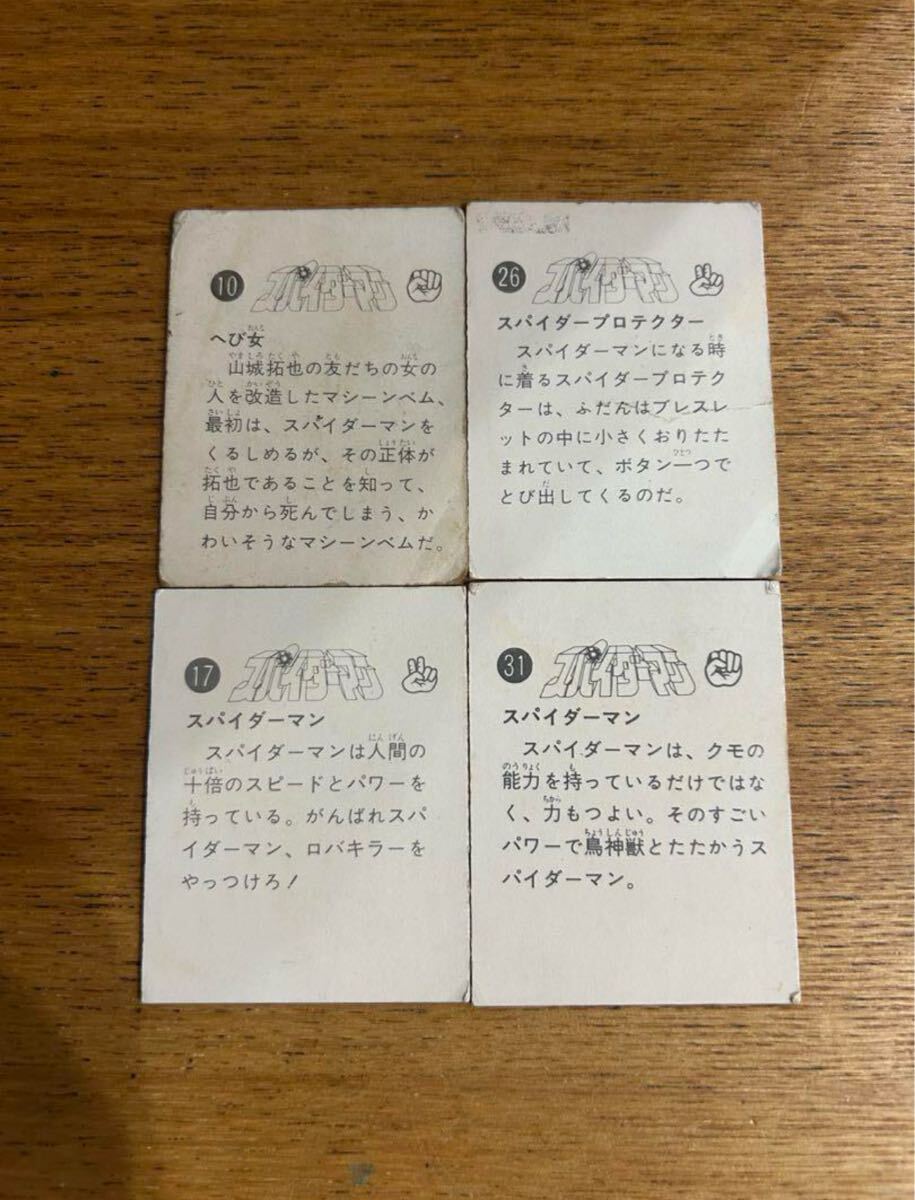 10 スパイダーマン
へび女
山城拓也の友だちの女の
人を改造したマシーンベム、
最初は、スパイダーマンを
くるしめるが、その正体が
拓也であることを知って、
自分から死んでしまう、か
わいそうなマシーンベムだ。
26 スパイダーマン
スパイダープロテクター
スパイダーマンになる時
に着るスパイダープロテク
ターは、ふだんはブレスレ
ットの中に小さくおりたた
まれていて、ボタン一つで
とび出してくるのだ。
17 スパイダーマン
スパイダーマン
スパイダーマンは人間の
十倍のスピードとパワーを
持っている。がんばれスパ
イダーマン、ロバキラーを
やっつけろ！
31 スパイダーマン
スパイダーマン
スパイダーマンは、クモの
能力を持っているだけではな
く、力もつよい。そのすごい
パワーで鳥神獣とたたかうス
パイダーマン。